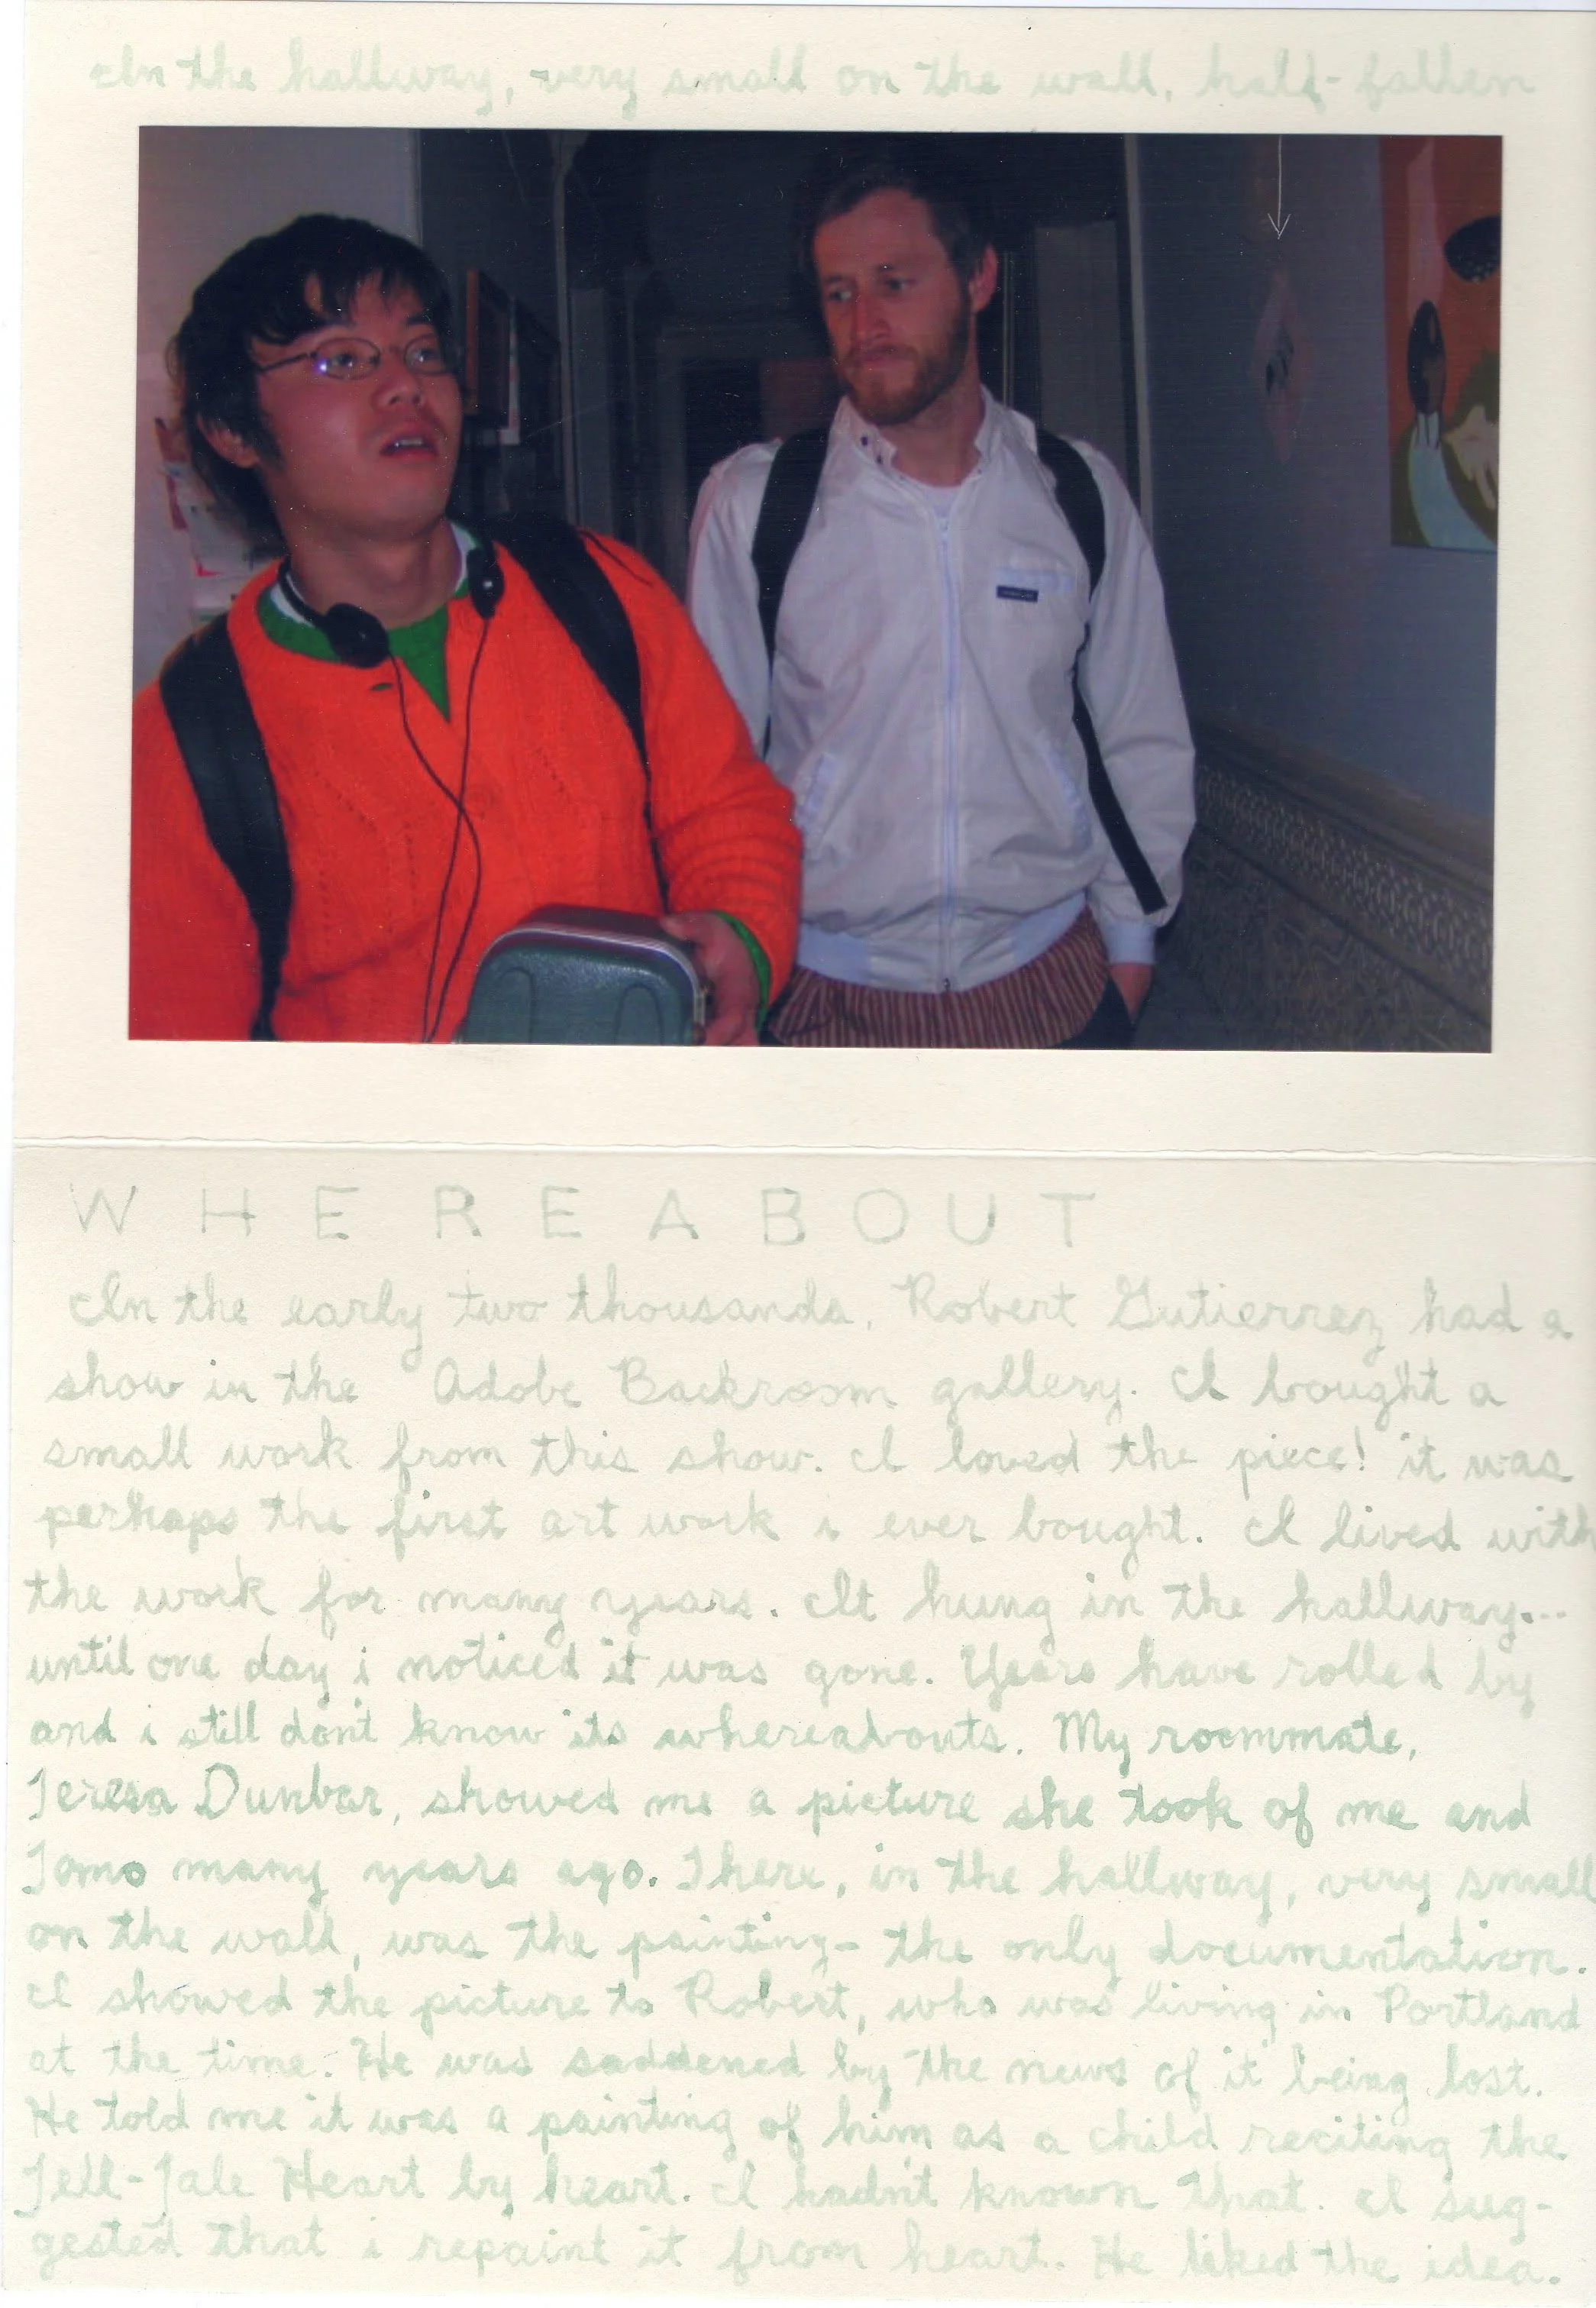 In the hallway, very small on the wall, half-fallen
WHEREABOUT
In the early two thousands, Robert Gutierrez had a
show in the Adobe Backroom gallery. I bought a
small work from this show. I loved the piece! it was
perhaps the first art work i ever bought. I lived with
the work for many years. It hung in the hallway...
until one day i noticed it was gone. Years have rolled by
and i still don't know its whereabouts. My roommate,
Teresa Dunbar, showed me a picture she took of me and
Tomo many years ago. There, in the hallway, very small
on the wall, was the painting- the only documentation.
I showed the picture to Robert, who was living in Portland
at the time. He was saddened by the news of it being lost.
He told me it was a painting of him as a child reciting the
Tell-Tale Heart by heart. I hadn't known that. I sug-
gested that i repaint it from heart. He liked the idea.